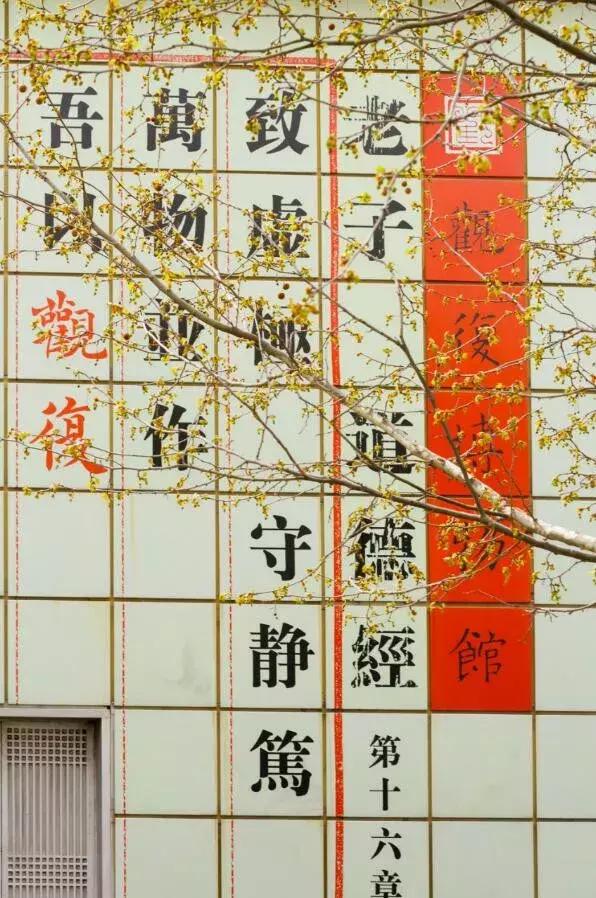 觀復博物館
老子 道德經 第十六章
致虛極 守静篤
萬物並作
吾以觀復